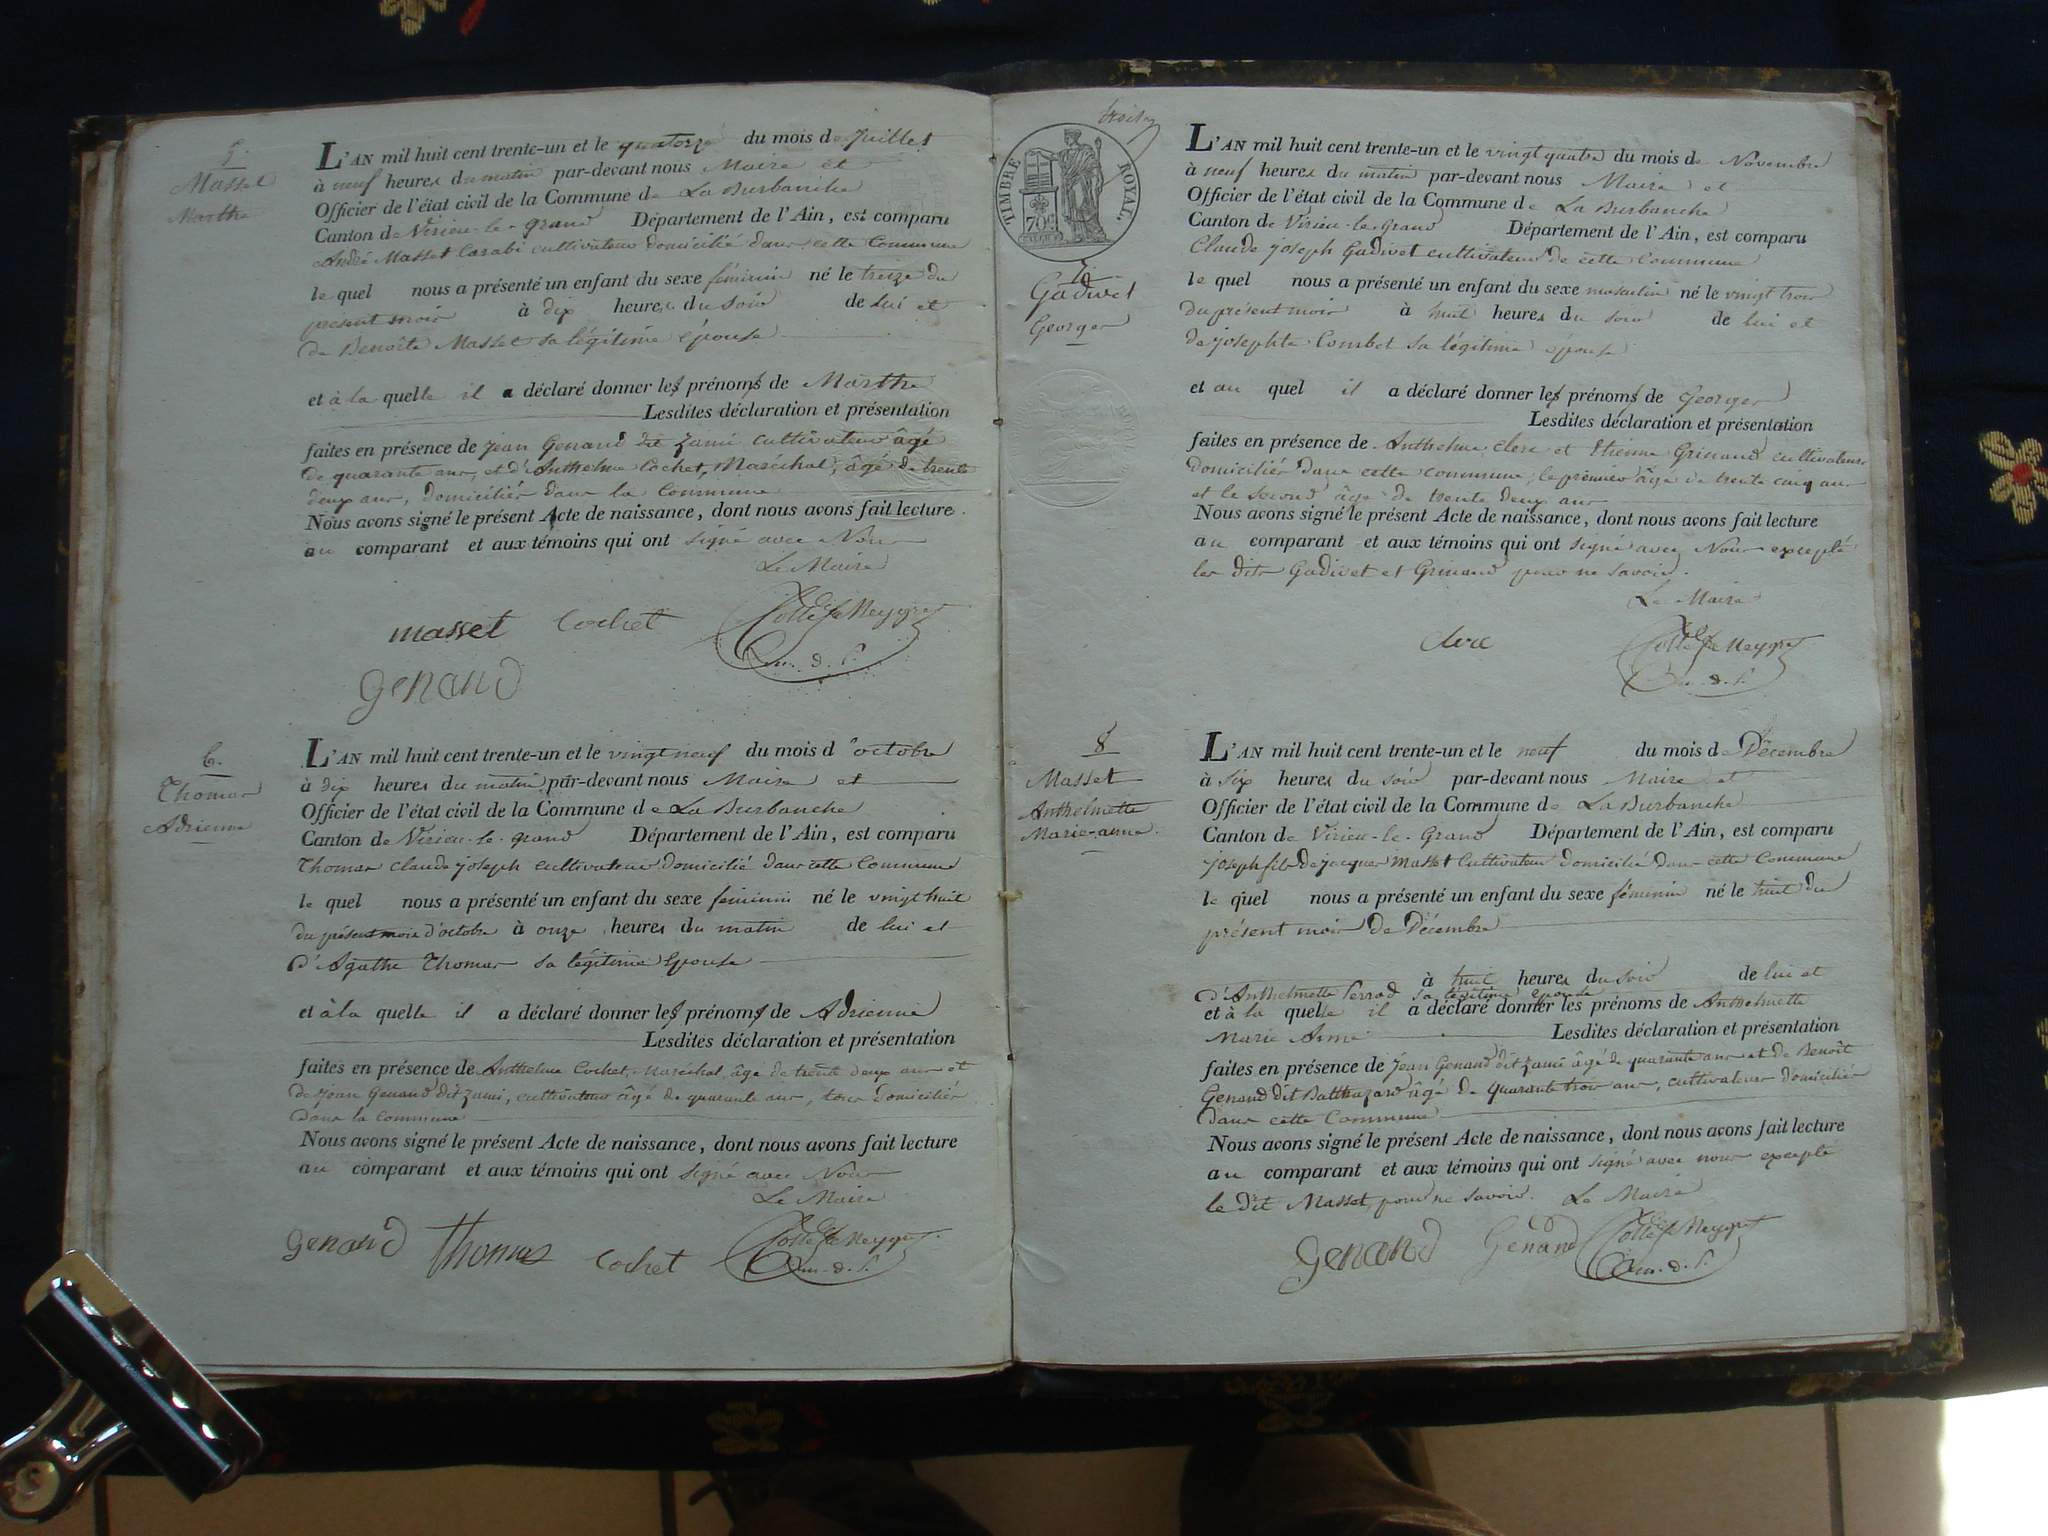 5.
Masset
Marthe
L'AN mil huit cent trente-un et le quatorze du mois de Juillet
à neuf heures du matin par-devant nous Maire et
Officier de l'état civil de la Commune de La Burbanche
Canton de Virieu-le-grand Département de l'Ain, est comparu
André Masset Carabi cultivateur domicilié dans cette Commune
le quel nous a présenté un enfant du sexe féminin né le treize du
présent mois à dix heures du soir de lui et
de Benoîte Masset sa légitime épouse
et à la quelle il a déclaré donner les prénoms de Marthe
Lesdites déclaration et présentation
faites en présence de Jean Genand dit Zami cultivateur âgé
de quarante ans, et d'Anthelme Cochet, Maréchal, âgé de trente
deux ans, domiciliés dans la Commune
Nous avons signé le présent Acte de naissance, dont nous avons fait lecture
au comparant et aux témoins qui ont signé avec Nous
Le Maire
masset Cochet
Genand
6.
Thomas
Adrienne
L'AN mil huit cent trente-un et le vingt neuf du mois d'octobre
à dix heures du matin par-devant nous Maire et
Officier de l'état civil de la Commune de La Burbanche
Canton de Virieu-le-grand Département de l'Ain, est comparu
Thomas Claude joseph cultivateur domicilié dans cette Commune
le quel nous a présenté un enfant du sexe féminin né le vingt huit
du présent mois d'octobre à onze heures du matin de lui et
d'Agathe Thomas sa légitime Epouse
et à la quelle il a déclaré donner les prénoms de Adrienne
Lesdites déclaration et présentation
faites en présence de Anthelme Cochet, Maréchal, âgé de trente deux ans et
de Jean Genand dit Zami, cultivateur âgé de quarante ans, tous domiciliés
dans la commune
Nous avons signé le présent Acte de naissance, dont nous avons fait lecture
au comparant et aux témoins qui ont signé avec Nous
Le Maire
Genand Thomas Cochet
TIMBRE ROYAL.
70c
7.
Gadivet
Georges
L'AN mil huit cent trente-un et le vingt quatre du mois de Novembre
à neuf heures du matin par-devant nous Maire et
Officier de l'état civil de la Commune de La Burbanche
Canton de Virieu-le-Grand Département de l'Ain, est comparu
Claude joseph Gadivet cultivateur de cette Commune
le quel nous a présenté un enfant du sexe masculin né le vingt trois
du présent mois à huit heures du soir de lui et
de josephte Combet sa légitime épouse
et au quel il a déclaré donner les prénoms de Georges
Lesdites déclaration et présentation
faites en présence de Anthelme clerc et Etienne Grinand cultivateurs
domiciliés dans cette commune, le premier âgé de trente cinq ans
et le second âgé de trente deux ans
Nous avons signé le présent Acte de naissance, dont nous avons fait lecture
au comparant et aux témoins qui ont signé avec Nous excepté
les dits Gadivet et Grinand pour ne savoir.
Le Maire
clerc
8
Masset
Anthelmette
Marie-anne.
L'AN mil huit cent trente-un et le neuf du mois de Décembre
à six heures du soir par-devant nous Maire et
Officier de l'état civil de la Commune de La Burbanche
Canton de Virieu-le-Grand Département de l'Ain, est comparu
Joseph fils de jacques Masset Cultivateur domicilié dans cette Commune
le quel nous a présenté un enfant du sexe féminin né le huit du
présent mois de Décembre
à huit heures du soir de lui et
d'Anthelmette Perrod sa légitime épouse
et à la quelle il a déclaré donner les prénoms de Anthelmette
Marie Anne Lesdites déclaration et présentation
faites en présence de Jean Genand dit Zami âgé de quarante ans et de Benoît
Genand dit Balthazard âgé de quarante trois ans, cultivateurs domiciliés
dans cette Commune
Nous avons signé le présent Acte de naissance, dont nous avons fait lecture
au comparant et aux témoins qui ont signé avec nous excepté
le dit Masset, pour ne savoir. Le Maire
Genand Genand